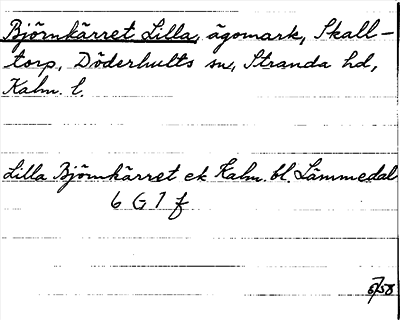 Björnkärret Lilla, ägomark, Skall-
torp, Döderhults sn, Stranda hd,
Kalm. l.
Lilla Björnkärret ek Kalm. bl. Lämmedal
6 G 7 f
5/58